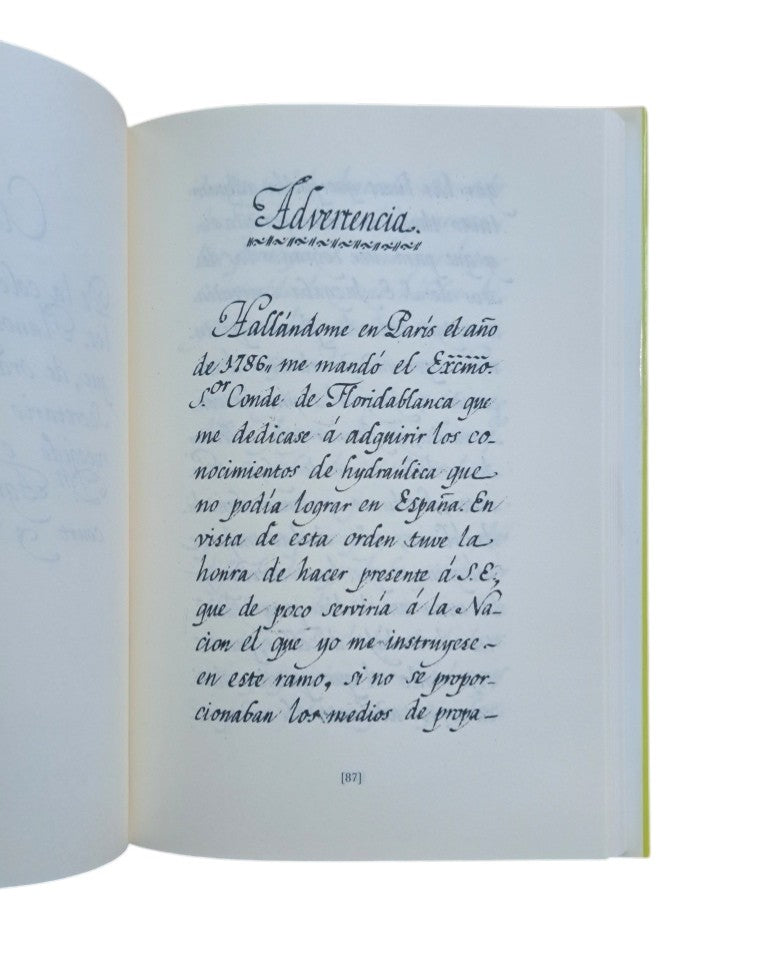 Advertencia.
Hallándome en París el año
de 1786„ me mandó el Excmo.
S.or Conde de Floridablanca que
me dedicase á adquirir los co-
nocimientos de hydraúlica que
no podía lograr en España. En
vista de esta orden tuve la
honra de hacer presente á S.E.,
que de poco serviría á la Na-
cion el que yo me instruyese-
en este ramo, si no se propor-
cionaban los medios de propa-
[87]